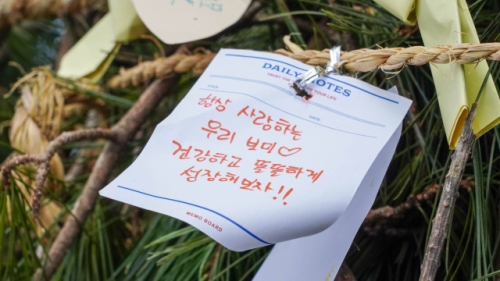 DAILY NOTES
항상 사랑하는
우리 보미♡
건강하고 똑똑하게
성장해보자!!
MEMO BOARD